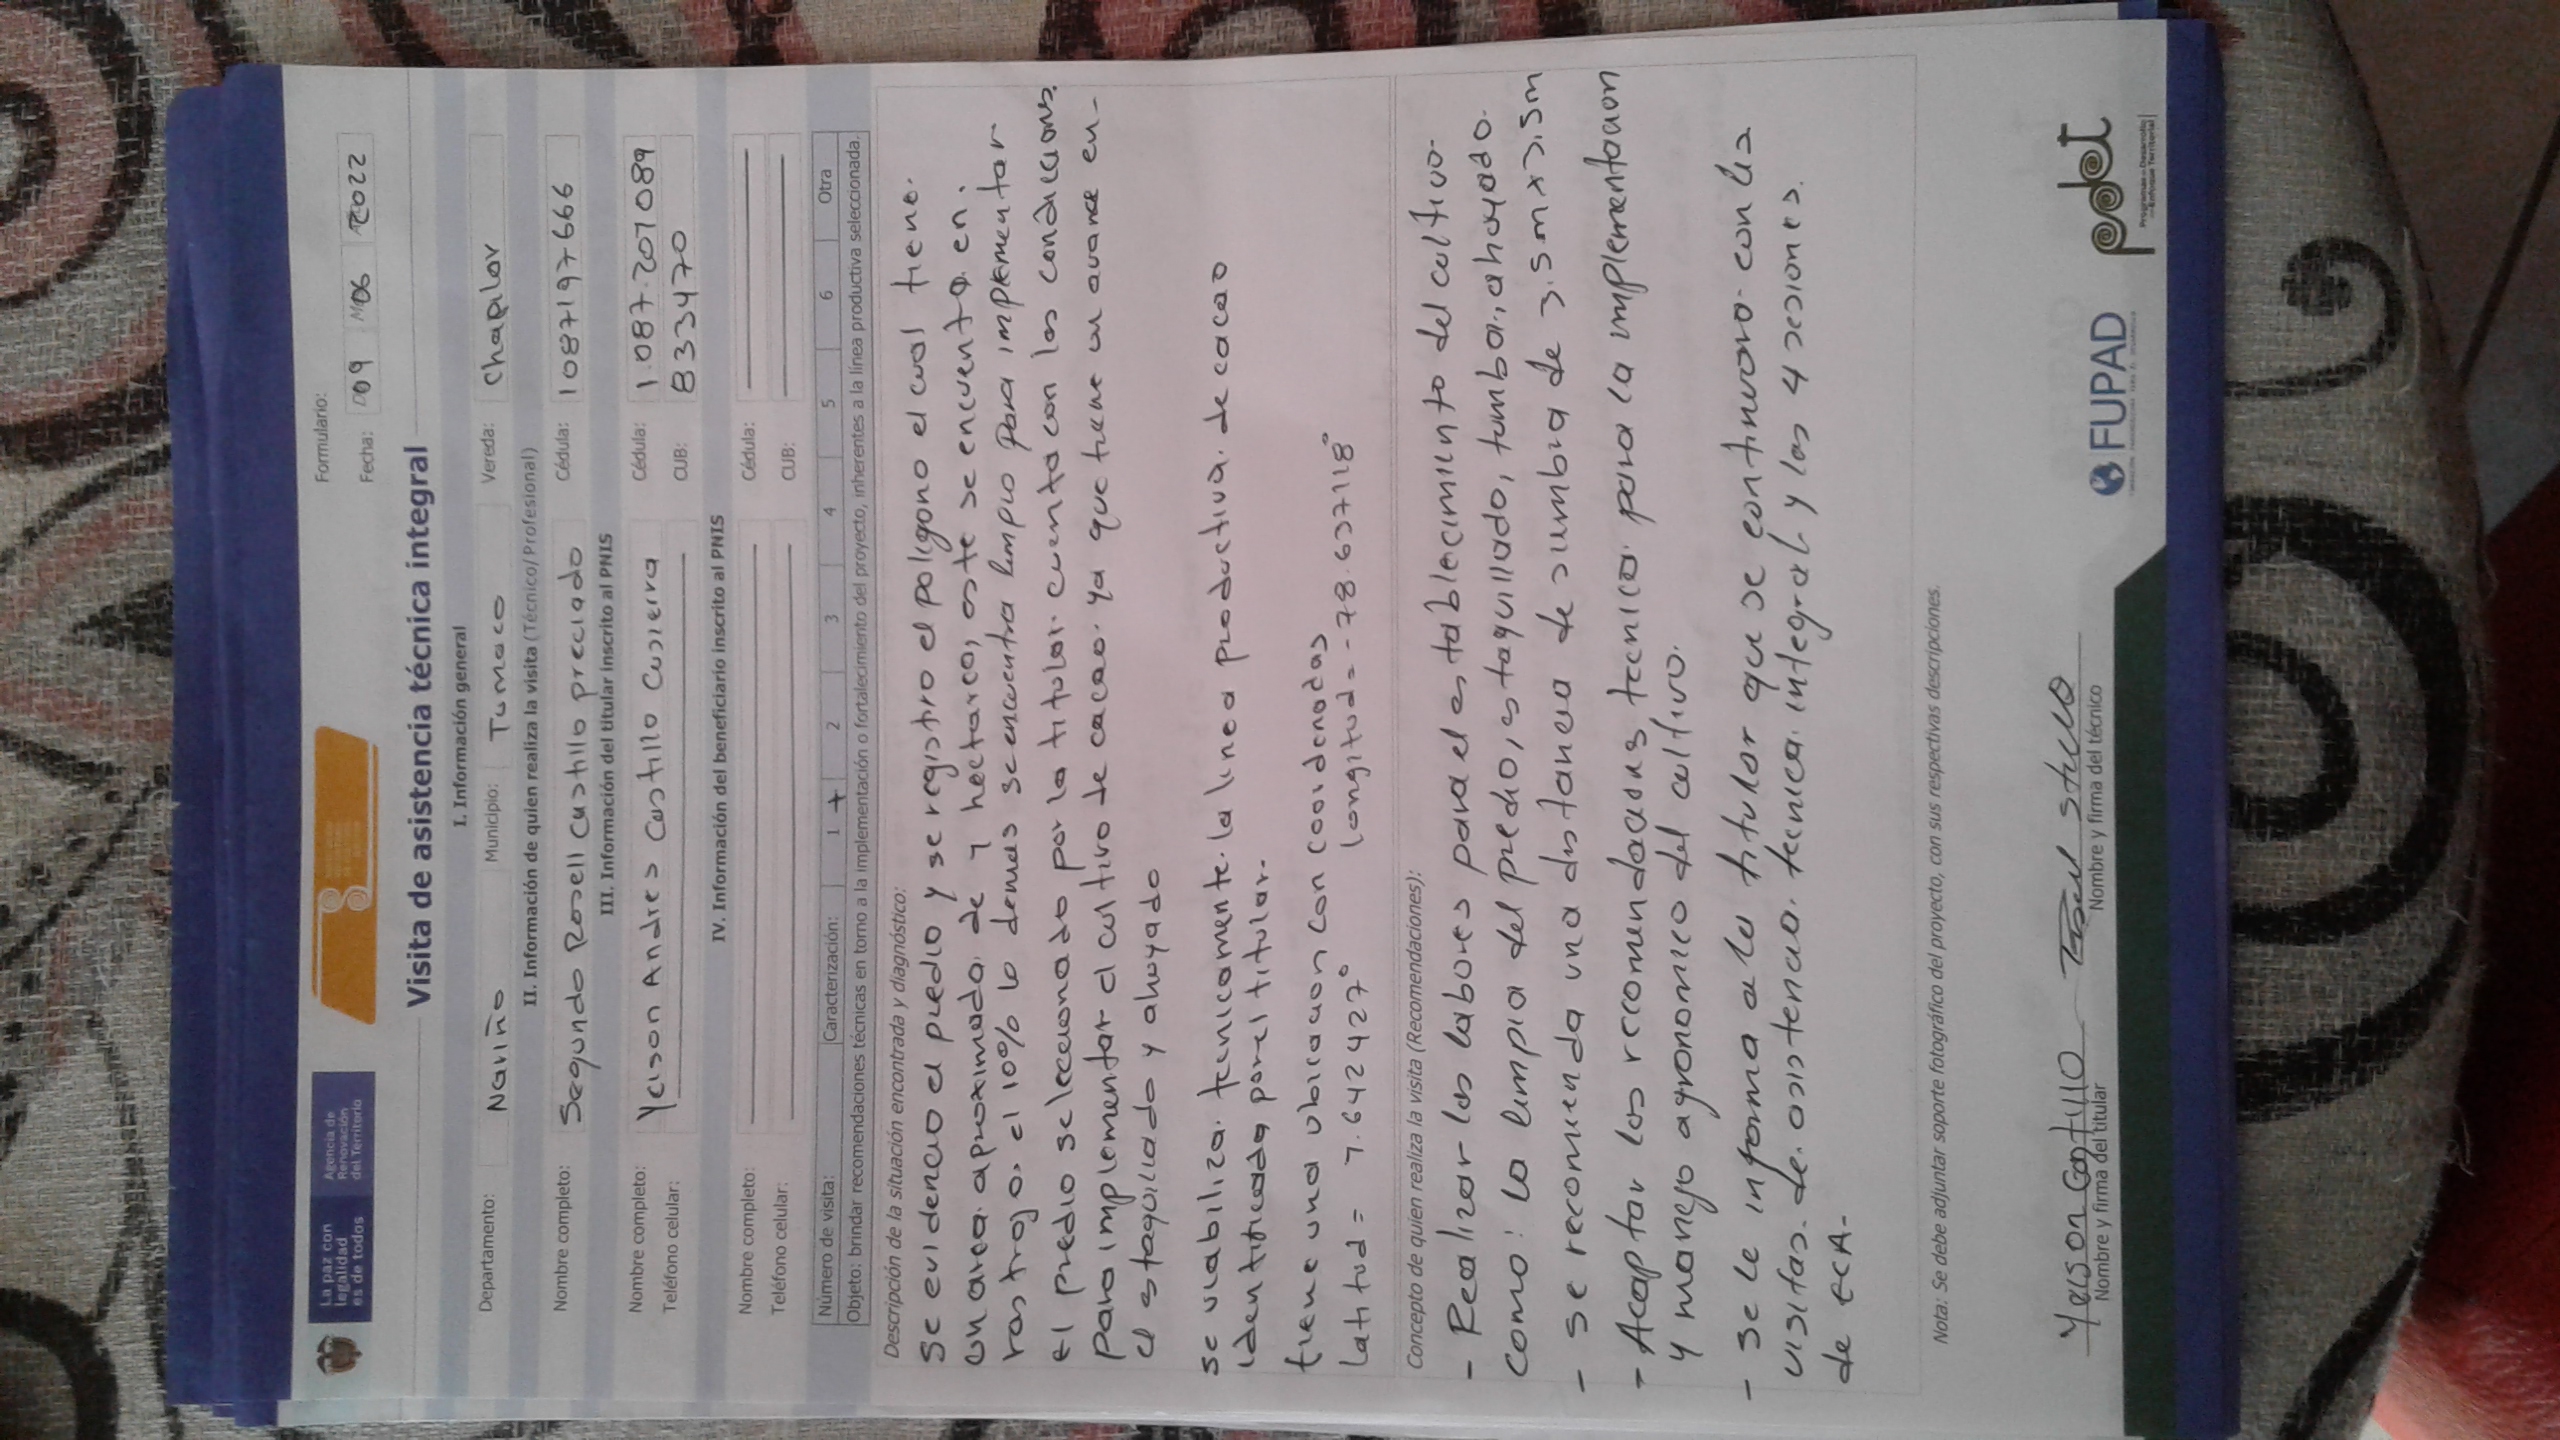 La paz con
legalidad
es de todos
Agencia de
Renovación
del Territorio
Formulario:
Fecha: D09 M06 A2022
Visita de asistencia técnica integral
I. Información general
Departamento: Nariño Municipio: Tumaco Vereda: Chapilar
II. Información de quien realiza la visita (Técnico/Profesional)
Nombre completo: Segundo Rosell Castillo preciado Cédula: 1087197666
III. Información del titular inscrito al PNIS
Nombre completo: Yeison Andres Castillo Cusierra Cédula: 1.087.207089
Teléfono celular: CUB: 833470
IV. Información del beneficiario inscrito al PNIS
Nombre completo: Cédula:
Teléfono celular: CUB:
Número de visita: Caracterización: 1 + 2 3 4 5 6 Otra
Objeto: brindar recomendaciones técnicas en torno a la implementación o fortalecimiento del proyecto, inherentes a la línea productiva seleccionada.
Descripción de la situación encontrada y diagnóstico:
Se evidencio el predio y se registro el poligono el cual tiene.
un area aproximada de 1 hectarea, este se encuentra en.
rastrojo el 10% lo demas se encuentra limpio para implementar
el predio seleccionado por la titular. cuenta con las condiciones.
para implementar el cultivo de cacao. ya que tiene un avance en-
el estaquillado y ahoyado
se viabiliza. tecnicamente. la linea productiva. de cacao
identificada por el titular.
tiene una ubicacion con coordenadas
latitud = 1.642427° longitud = -78.637118°
Concepto de quien realiza la visita (Recomendaciones):
- Realizar las labores para el establecimiento del cultivo.
como: la limpia del predio, estaquillado, tumba., ahoyado.
- se recomienda una distancia de siembra de 3.5m x 3.5m
- Aceptar las recomendaciones tecnica. para la implementacion
y manejo agronomico del cultivo.
- se le informa a la titular que se continuara. con las
visitas. de. asistencia. tecnica. integral y las 4 sesiones.
de ECA.
Nota: Se debe adjuntar soporte fotográfico del proyecto, con sus respectivas descripciones.
Yeison Castillo
Nombre y firma del titular
Nombre y firma del técnico
FUPAD
pdet
Programas de Desarrollo
con Enfoque Territorial